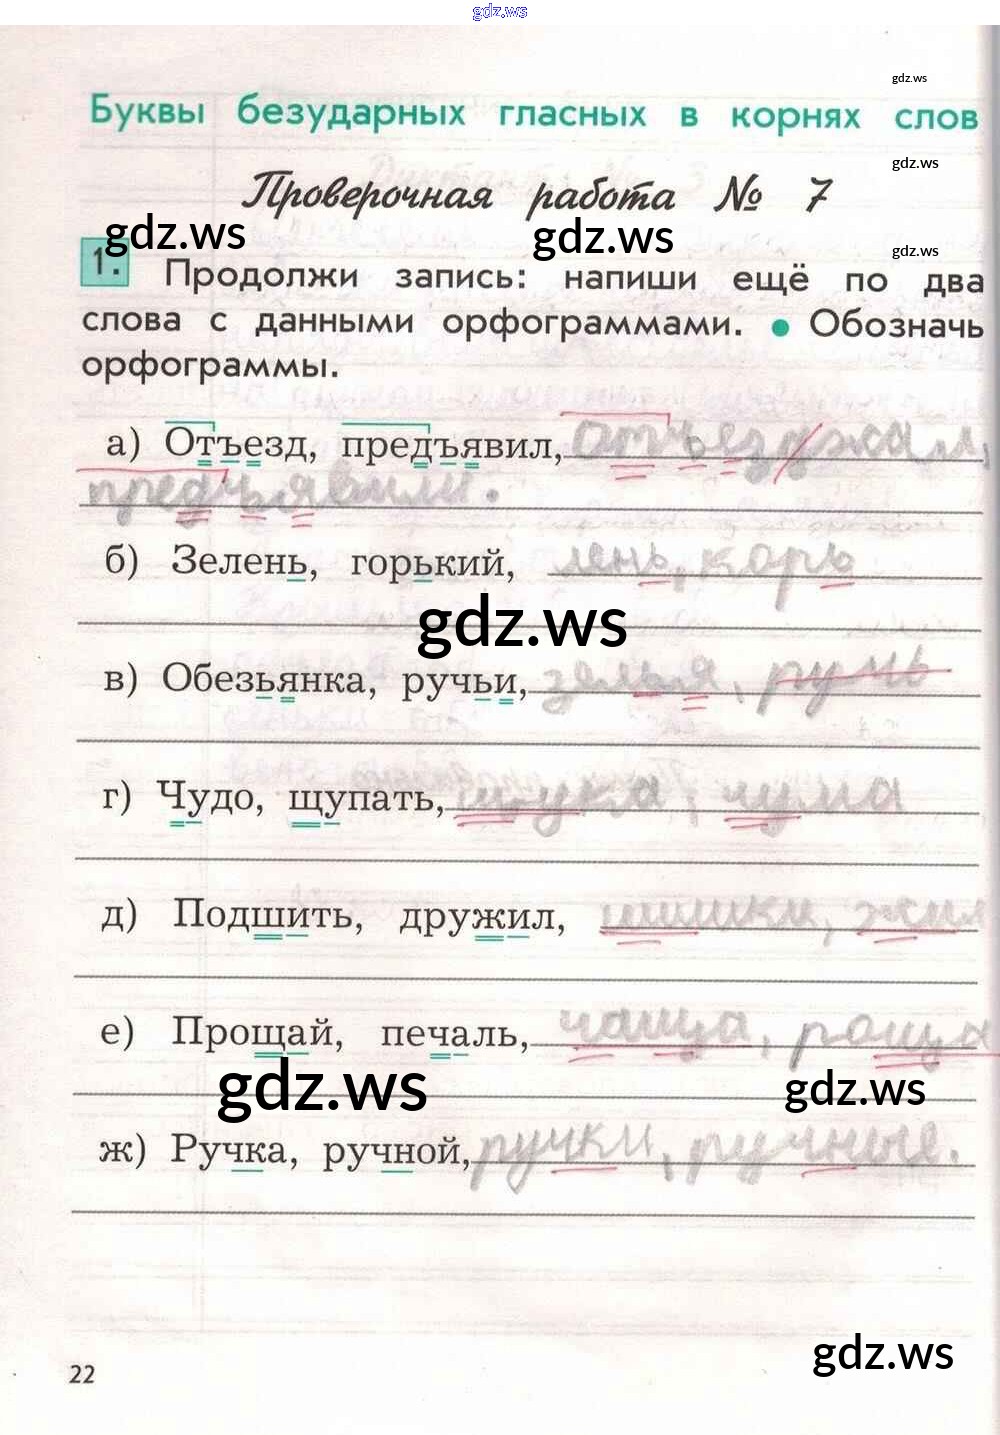 gdz.ws
gdz.ws
Буквы безударных гласных в корнях слов
gdz.ws
Проверочная работа № 7
gdz.ws gdz.ws gdz.ws
1. Продолжи запись: напиши ещё по два
слова с данными орфограммами. ● Обозначь
орфограммы.
а) Отъезд, предъявил, отъезджал,
предъявили.
б) Зелень, горький, лень, корь
gdz.ws
в) Обезьянка, ручьи, зелья, румь
г) Чудо, щупать, щука, чума
д) Подшить, дружил, шишки, жил
е) Прощай, печаль, чаща, роща
gdz.ws gdz.ws
ж) Ручка, ручной, ручки, ручные.
gdz.ws
22